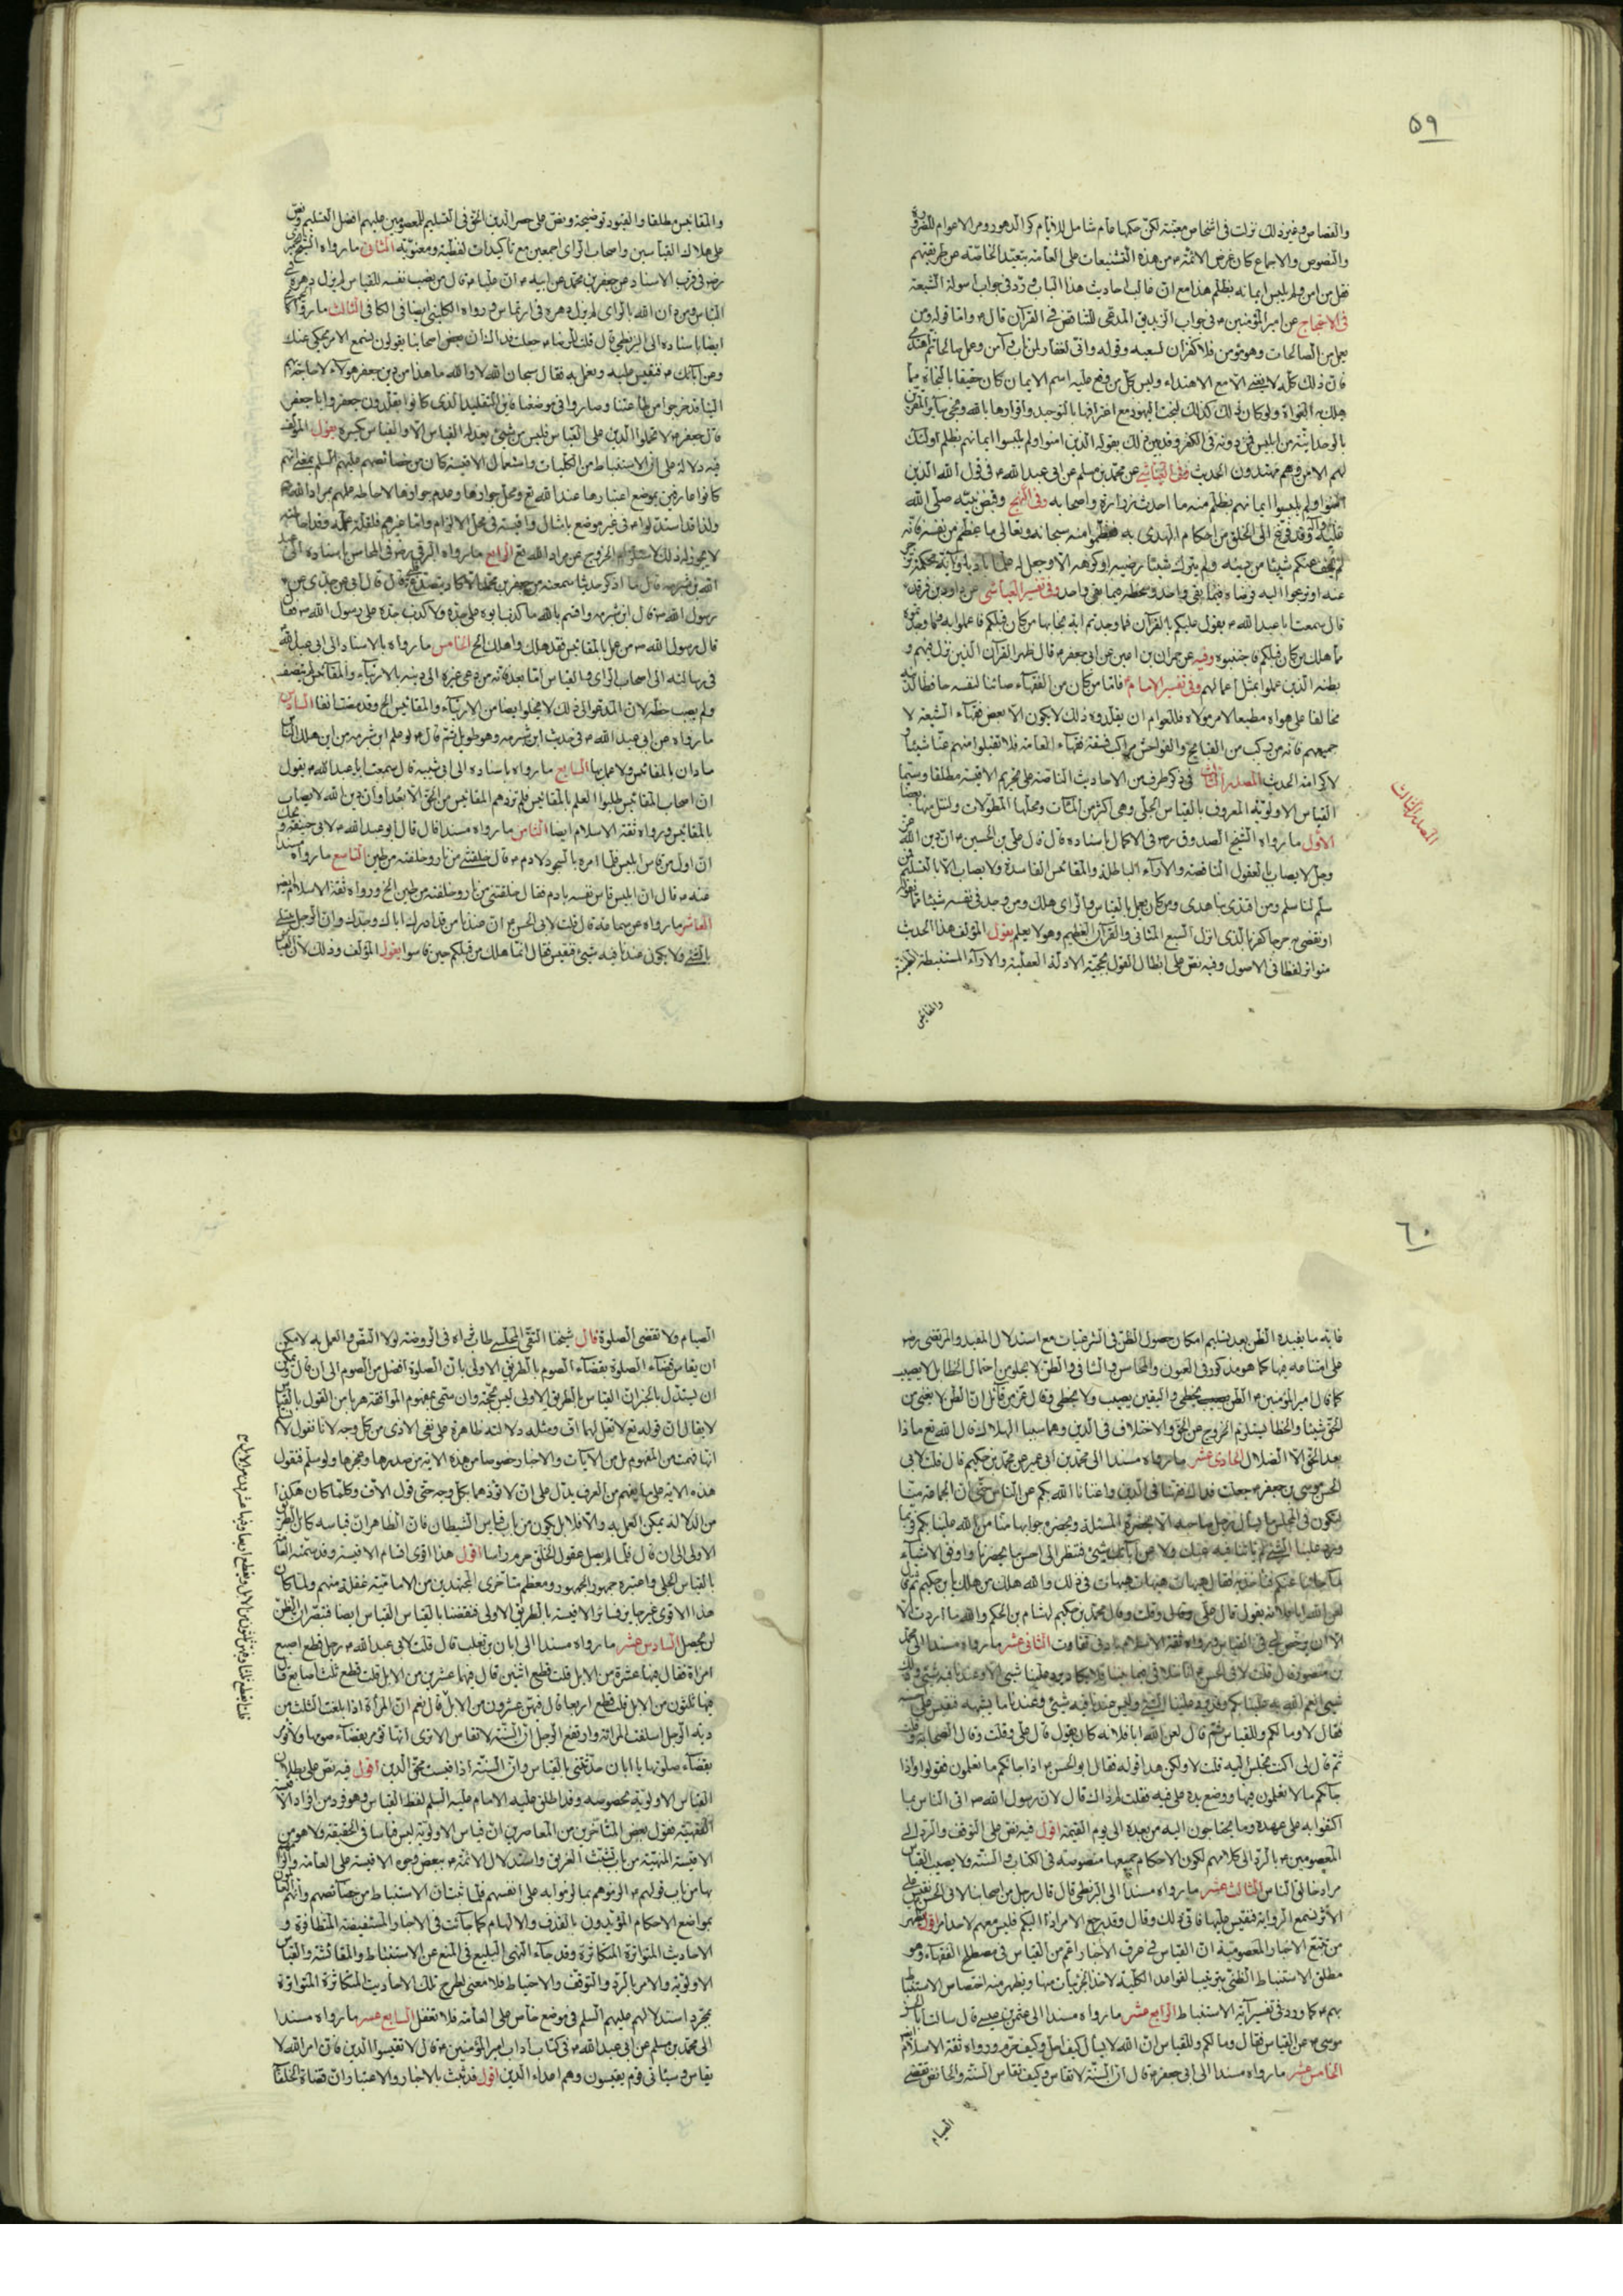 ٥٩
والقصاص وغير ذلك نزلت في اشخاص معينة لكن حكمها عام شامل للانام كر الدهور ومر الاعوام للضرورة
والنصوص والاجماع كان غرض الائمة من هذه التشنيعات على العامة
فمن امن ولم يلبس ايمانه بظلم هذا مع ان غالب احاديث هذا الباب ورد في جواب اسولة الشيعة
في الاحتجاج عن امير المؤمنين في جواب الزنديق المدعي للتناقض في القرآن قال واما قوله ومن
يعمل من الصالحات وهو مؤمن فلا كفران لسعيه وقوله واني لغفار لمن تاب وآمن وعمل صالحا ثم اهتدى
فان ذلك كله لا يغني الا مع الاهتداء وليس كل من وقع عليه اسم الايمان كان حقيقا بالنجاة مما
هلك به الغواة ولو كان ذلك كذلك لنجت اليهود مع اعترافها بالتوحيد واقرارها بالله ونجى سائر المقرين
بالوحدانية من ابليس فمن دونه في الكفر وقد بين ذلك بقوله الذين امنوا ولم يلبسوا ايمانهم بظلم اولئك
لهم الامن وهم مهتدون الحديث وفي العياشي عن محمد بن مسلم عن ابي عبد الله في قول الله الذين
امنوا ولم يلبسوا ايمانهم بظلم منه ما احدث زرارة واصحابه وفي النهج وقبض نبيه صلى الله
عليه وآله وقد فرغ الى الخلق من احكام الهدى به فعظموا منه سبحانه وتعالى ما عظم من نفسه فانه
لم يخف عنكم شيئا من دينه ولم يترك شيئا رضيه او كرهه الا وجعل له علما باديا وآية محكمة تزجر
عنه او تدعوا اليه فرضاه فيما بقي واحد وسخطه فيما بقي واحد وفي تفسير العياشي عن داود بن فرقد
قال سمعت ابا عبد الله يقول عليكم بالقرآن فما وجدتم اية نجا بها من كان قبلكم فاعملوا به وما وجدتموه
مما هلك من كان قبلكم فاجتنبوه وفيه عن حمران بن اعين عن ابي جعفر قال ظهر القرآن الذين نزل فيهم و
بطنه الذين عملوا بمثل اعمالهم وفي تفسير الامام فاما من كان من الفقهاء صائنا لنفسه حافظا لدينه
مخالفا على هواه مطيعا لامر مولاه فللعوام ان يقلدوه وذلك لا يكون الا بعض فقهاء الشيعة لا
جميعهم فانه من ركب من القبايح والفواحش مراكب فسقة فقهاء العامة فلا تقبلوا منهم عنا شيئا و
لا كرامة الحديث المصدر الثالث في ذكر طرف من الاحاديث الناصة على تحريم الاقيسة مطلقا وسيما
القياس الاولوية المعروف بالقياس الجلي وهي اكثر من المئات ومحلها المطولات ولنتل منها بعضا
الاول ما رواه الشيخ الصدوق ره في الاكمال باسناده قال قال علي بن الحسين ان دين الله عز
وجل لا يصاب بالعقول الناقصة والاراء الباطلة والمقائيس الفاسدة ولا يصاب الا بالتسليم فمن
سلم لنا سلم ومن اقتدى بنا هدى ومن كان يعمل بالقياس والراى هلك ومن وجد في نفسه شيئا مما نقوله
او نقضي به حرجا كفر بالذي انزل السبع المثاني والقرآن العظيم وهو لا يعلم يقول المؤلف هذا الحديث
متواتر لفظا في الاصول وفيه نص على ابطال القول بحجية الادلة العقلية والاراء المستنبطة
والمقائيس
المصدر الثالث
والمقائيس مطلقا والقيود توضيحية ونص على حصر الدين الحق في التسليم للمعصومين عليهم افضل التسليم ونص
على هلاك القياسين واصحاب الراى اجمعين مع تاكيدات لفظية ومعنوية الثاني ما رواه الشيخ
في قرب الاسناد عن جعفر بن محمد عن ابيه ان عليا قال من نصب نفسه للقياس لم يزل دهره في
التباس ومن دان الله بالراى لم يزل دهره في ارتماس ورواه الكليني ايضا في الكافي الثالث ما رواه
ايضا باسناده الى البزنطي قال قلت للرضا جعلت فداك ان بعض اصحابنا يقولون نسمع الامر يحكى عنك
وعن آبائك فنقيس عليه ونعمل به فقال سبحان الله لا والله ما هذا من دين جعفر هؤلاء لا حاجة بهم
الينا قد خرجوا من طاعتنا وصاروا في موضعنا فاين التقليد الذي كانوا يقلدون جعفر وابا جعفر
قال جعفر لا تحملوا الدين على القياس فليس من شئ يعدله القياس الا والقياس يكسره يقول المؤلف
فيه دلالة على ان الاستنباط من الكليات واستعمال الاقيسة كان من خصائصهم عليهم السلم بمعنى انهم
كانوا عارفين بموضع اعتبارها عند الله تع ومحل جوازها وعدم جوازها لاحاطة علمهم بمراد الله
الرابع ما رواه البرقي رض في المحاسن باسناده الى
رسول الله قال ابن شبرمة واقسم بالله ما كذب ابوه على جده ولا كذب جده على رسول الله فقال
قال رسول الله من عمل بالمقائيس فقد هلك واهلك الخ الخامس ما رواه بالاسناد الى ابي عبد الله
في رسالته الى اصحاب الراى والقياس اما بعد فانه من دعى غيره الى دينه بالارتياء والمقائيس لم ينصف
ولم يصب حظه لان المدعو الى ذلك لا يخلو ايضا من الارتياء والمقائيس الخ وقد مضت انفا السادس
ما رواه عن ابي عبد الله في حديث ابن شبرمة وهو طويل ثم قال لو علم ابن شبرمة من اين هلك الناس
ما دان بالمقائيس ولا عمل بها السابع ما رواه باسناده الى ابي شيبة قال سمعت ابا عبد الله يقول
ان اصحاب المقائيس طلبوا العلم بالمقائيس فلم تزدهم المقائيس من الحق الا بعدا وان دين الله لا يصاب
بالمقائيس ورواه ثقة الاسلام ايضا الثامن ما رواه مسندا قال قال ابو عبد الله لابي حنيفة ويحك
ان اول من قاس ابليس فلما امره بالسجود لادم قال خلقتني من نار وخلقته من طين التاسع ما رواه مسندا
عنه قال ان ابليس قاس نفسه بادم فقال خلقتني من نار وخلقته من طين الخ ورواه ثقة الاسلام ايضا
العاشر ما رواه عن سماعة قال قلت لابي الحسن ان عندنا من قد ادرك اباك وجدك وان الرجل يبتلى
بالشئ ولا يكون عندنا فيه شئ فيقيس فقال انما هلك من قبلكم حين قاسوا يقول المؤلف وذلك لان القياس
٦٠
فانه ما يفيده الظن بعد تسليم امكان حصول الظن في الشرعيات مع استدلال المفيد والمرتضى رض
على امتناعه فيها كما هو مذكور في العيون والمحاسن والشافي والظن لا يخلو من احتمال الخطا بل لا يصيب
كما قال امير المؤمنين الظن يخطى واليقين يصيب ولا يخطى وقال عز من قائل ان الظن لا يغني من
الحق شيئا والخطا يستلزم الخروج عن الحق والاختلاف في الدين وهما سببا الهلاك قال الله تع ماذا
بعد الحق الا الضلال الحادي عشر ما رواه مسندا الى محمد بن ابي عمير عن محمد بن حكيم قال قلت لابي
الحسن موسى بن جعفر جعلت فداك فقهنا في الدين واغنانا الله بكم عن الناس حتى ان الجماعة منا
لتكون في المجلس ما يسال رجل صاحبه الا يحضره المسئلة ويحضره جوابها منا من الله علينا بكم وربما
ورد علينا الشئ لم ياتنا فيه عنك ولا عن آبائك شئ فننظر الى احسن ما يحضرنا واوفق الاشياء
لما جائنا عنكم فناخذ به فقال هيهات هيهات هيهات في ذلك والله هلك من هلك يا بن حكيم ثم قال
لعن الله ابا حنيفة يقول قال علي وقلت وقال محمد بن حكيم لهشام بن الحكم والله ما اردت الا
الا ان يرخص لي في القياس ورواه ثقة الاسلام بادنى تفاوت الثاني عشر ما رواه مسندا الى محمد
فقال لا وما لكم وللقياس ثم قال لعن الله ابا فلانه كان يقول قال علي وقلت وقال الصحابة وقلت
ثم قال لي اكنت تجلس اليه قلت لا ولكن هذا قوله فقال ابو الحسن اذا جائكم ما تعلمون فقولوا واذا
جائكم ما لا تعلمون فها ووضع يده على فيه فقلت لم ذاك قال لان رسول الله اتى الناس بما
اكتفوا به على عهده وما يحتاجون اليه من بعده الى يوم القيمة اقول فيه نص على التوقف والرد الى
المعصومين بالرد الى كلامهم لكون الاحكام جميعها منصوصة في الكتاب والسنة ولا يصيب القياس
مراد خالق الناس الثالث عشر ما رواه مسندا الى البزنطي قال قال رجل من اصحابنا لابي الحسن نقيس على
الاثر نسمع الرواية فنقيس عليها فابى ذلك وقال وقد رجع الامر اذا اليكم فليس معهم لاحد امر اقول يظهر
من تتبع الاخبار المعصومية ان القياس في عرف الاخبار اعم من القياس في مصطلح الفقهاء وهو
مطلق الاستنباط الظني بترتيب القواعد الكلية لاخذ الجزئيات منها ويظهر منه اختصاص الاستنباط
بهم كما ورد في تفسير آية الاستنباط الرابع عشر ما رواه مسندا الى عثمن بن عيسى قال سالت ابا الحسن
موسى عن القياس فقال وما لكم وللقياس ان الله لا يسال كيف احل وكيف حرم ورواه ثقة الاسلام ايضا
الخامس عشر ما رواه مسندا الى ابي جعفر قال ان السنة لا تقاس وكيف تقاس السنة والحائض تقضى
الصيام
الصيام ولا تقضى الصلوة قال شيخنا التقي المجلسي طاب ثراه في الروضة لولا النص والعمل به لامكن
ان يقاس قضاء الصلوة بقضاء الصوم بالطريق الاولى بان الصلوة افضل من الصوم الى ان قال ويمكن
ان يستدل بالخبر ان القياس بالطريق الاولى ليس بحجة وان سمي بمفهوم الموافقة هربا من القول بالقياس
لا يقال ان قوله تع لا تقل لهما اف ومثله دلالته ظاهرة على نفي الاذى من كل وجه لانا نقول لا
انها فهمت من المفهوم بل من الآيات والاخبار خصوصا من هذه الاية من صدرها وعجزها ولو سلم فنقول
هذه الاية على ما يفهم من العرف يدل على ان لا تؤذهما بكل وجه حتى قول الاف وكلما كان هكذا
من الدلالة يمكن العمل به والا فلا بل يكون من باب قياس الشيطان فان الظاهر ان قياسه كان بالطريق
الاولى الى ان قال فلما لم يصل عقول الخلق حرم راسا اقول هذا اقوى اقسام الاقيسة وقد سمته العامة
بالقياس الجلي واعتبره جمهور الجمهور ومعظم متاخرى المجتهدين من الامامية غفلة منهم ولما كان
هذا الاقوى غير جايز فسائر الاقيسة بالطريق الاولى فنقضنا بالقياس القياس ايضا فتبصر ان الظن
لن يحصل السادس عشر ما رواه مسندا الى ابان بن تغلب قال قلت لابي عبد الله رجل قطع اصبع
امراة فقال فيها عشرة من الابل قلت قطع اثنين قال فيها عشرين من الابل قلت قطع ثلث اصابع قال
فيها ثلثون من الابل قلت قطع اربعا قال فيهن عشرون من الابل قال نعم ان المراة اذا بلغت الثلث من
دية الرجل سفلت المراة وارتفع الرجل ان السنة لا تقاس الا ترى انها تؤمر بقضاء صومها ولا تؤمر
بقضاء صلوتها يا ابان حدثتني بالقياس وان السنة اذا قيست محق الدين اقول فيه نص على بطلان
القياس الاولوية بخصوصه وقد اطلق عليه الامام عليه السلم لفظ القياس وهو فرد من افراد الاقيسة
الفقهية فقول بعض المتاخرين من المعاصرين ان قياس الاولوية ليس قياسا في الحقيقة ولا هو من
الاقيسة المنهية من باب تشبث الغريق واستدلال الائمة ببعض وجوه الاقيسة على العامة
بها من باب قولهم الزموهم بما الزموا به على انفسهم فلما ثبت ان الاستنباط من خصائصهم وانهم العالمون
بمواضع الاحكام المؤيدون بالقذف والالهام كما جائت في الاخبار المستفيضة المتظافرة و
الاحاديث المتواترة المتكاثرة وقد جاء النهى البليغ في المنع عن الاستنباط والمقائسة والقياس
الاولوية والامر بالرد والتوقف والاحتياط فلا معنى لطرح تلك الاحاديث المتكاثرة المتواترة
بمجرد استدلالهم عليهم السلم في موضع خاص على العامة فلا تغفل السابع عشر ما رواه مسندا
الى محمد بن مسلم عن ابي عبد الله في كتاب آداب امير المؤمنين قال لا تقيسوا الدين فان امر الله لا
يقاس وسياتي قوم يقيسون وهم اعداء الدين اقول قد ثبت بالاخبار والاعتبار ان قضاة الخلفاء